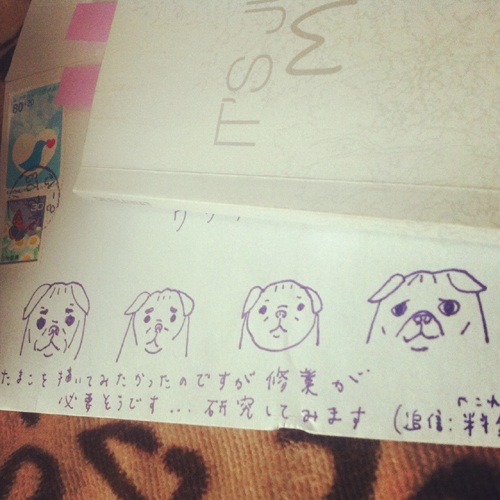 IT'S
80
30
たまこを描いてみたかったのですが修業が
必要そうです... 研究してみます (追信: